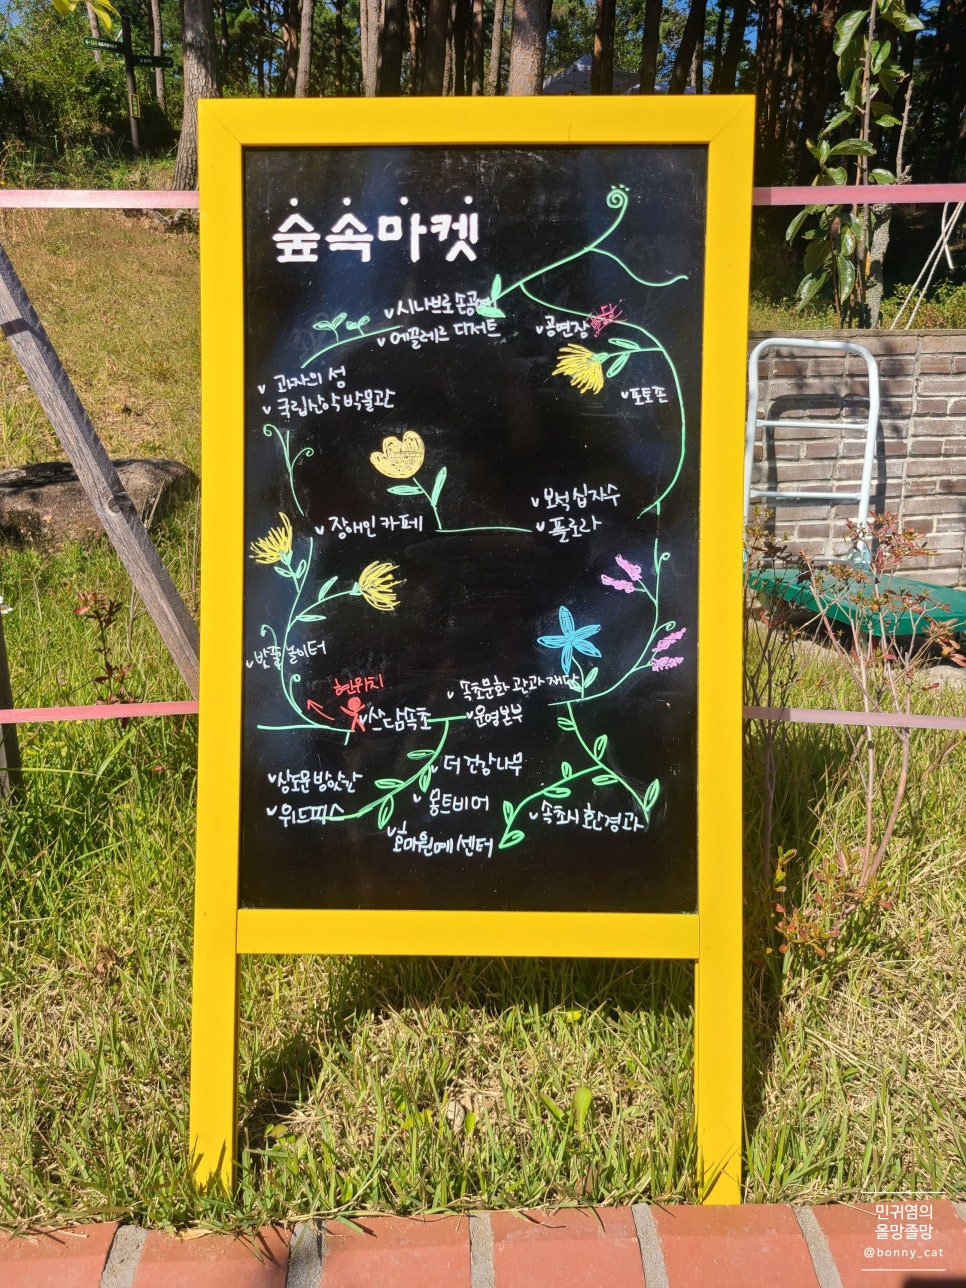 숲속마켓
시나브로 손공예
에끌레르 디저트
공연장
포토존
과자의 성
국립산악박물관
보석십자수
플로라
장애인 카페
반폴 놀이터
현위치
쓰담속초
속초문화관광재단
운영본부
상도문 방앗간
위드피스
더 건강나무
몽트비어
효매원예센터
속초시 환경과
민귀염의
올망졸망
@bonny_cat